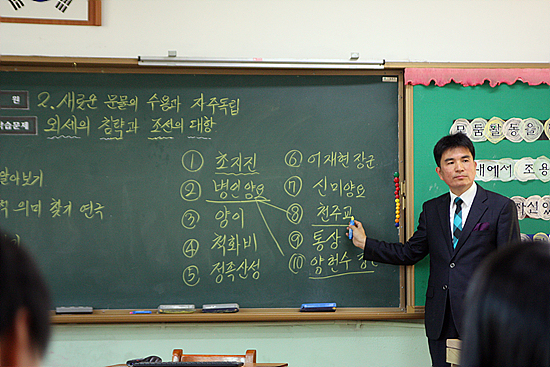 원
2. 새로운 문물의 수용과 자주독립
학습문제
외세의 침략과 조선의 대항
알아보기
의미 찾기 연극
① 초지진
② 병인양요
③ 양이
④ 척화비
⑤ 정족산성
⑥ 어재현 장군
⑦ 신미양요
⑧ 천주교
⑨ 통상
⑩ 양헌수
모둠활동을
내에서 조용